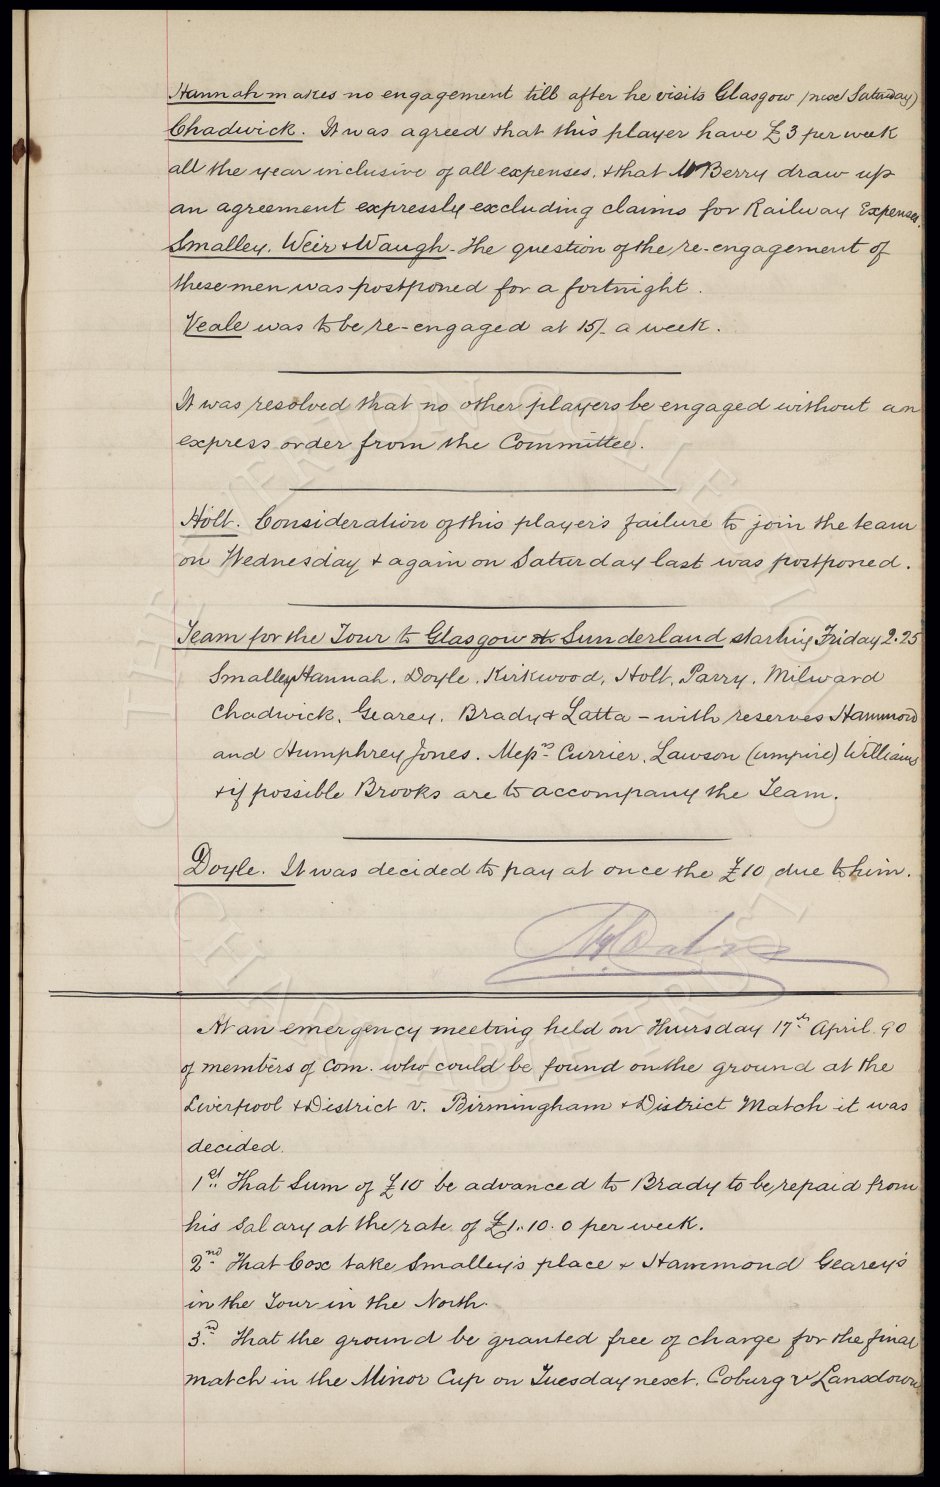 Hannah makes no engagement till after he visits Glasgow (next Saturday)
Chadwick. It was agreed that this player have £3 per week
all the year inclusive of all expenses. & that Mr Berry draw up
an agreement expressly excluding claims for Railway Expenses.
Smalley. Weir & Waugh - the question of the re-engagement of
these men was postponed for a fortnight.
Veale was to be re-engaged at 15/- a week.
It was resolved that no other players be engaged without an
express order from the Committee.
Holt. Consideration of this player's failure to join the team
on Wednesday & again on Saturday last was postponed.
Team for the Tour to Glasgow & Sunderland starting Friday 2.25
Smalley Hannah. Doyle. Kirkwood, Holt, Parry. Milward
Chadwick. Gearey. Brady & Latta - with reserves Hammond
and Humphrey Jones. Messrs Currier. Lawson (umpire) Williams
& if possible Brooks are to accompany the Team.
Doyle. It was decided to pay at once the £10 due to him.
At an emergency meeting held on Thursday 17th April 90
of members of Com. who could be found on the ground at the
Liverpool & District v. Birmingham & District Match it was
decided.
1st That Sum of £10 be advanced to Brady to be repaid from
his salary at the rate of £1.10.0 per week.
2nd That Cox take Smalley's place & Hammond Gearey's
in the Tour in the North.
3rd That the ground be granted free of charge for the final
match in the Minor Cup on Tuesday next. Coburg v Lansdowne
THE EVERTON COLLECTION
CHARITABLE TRUST